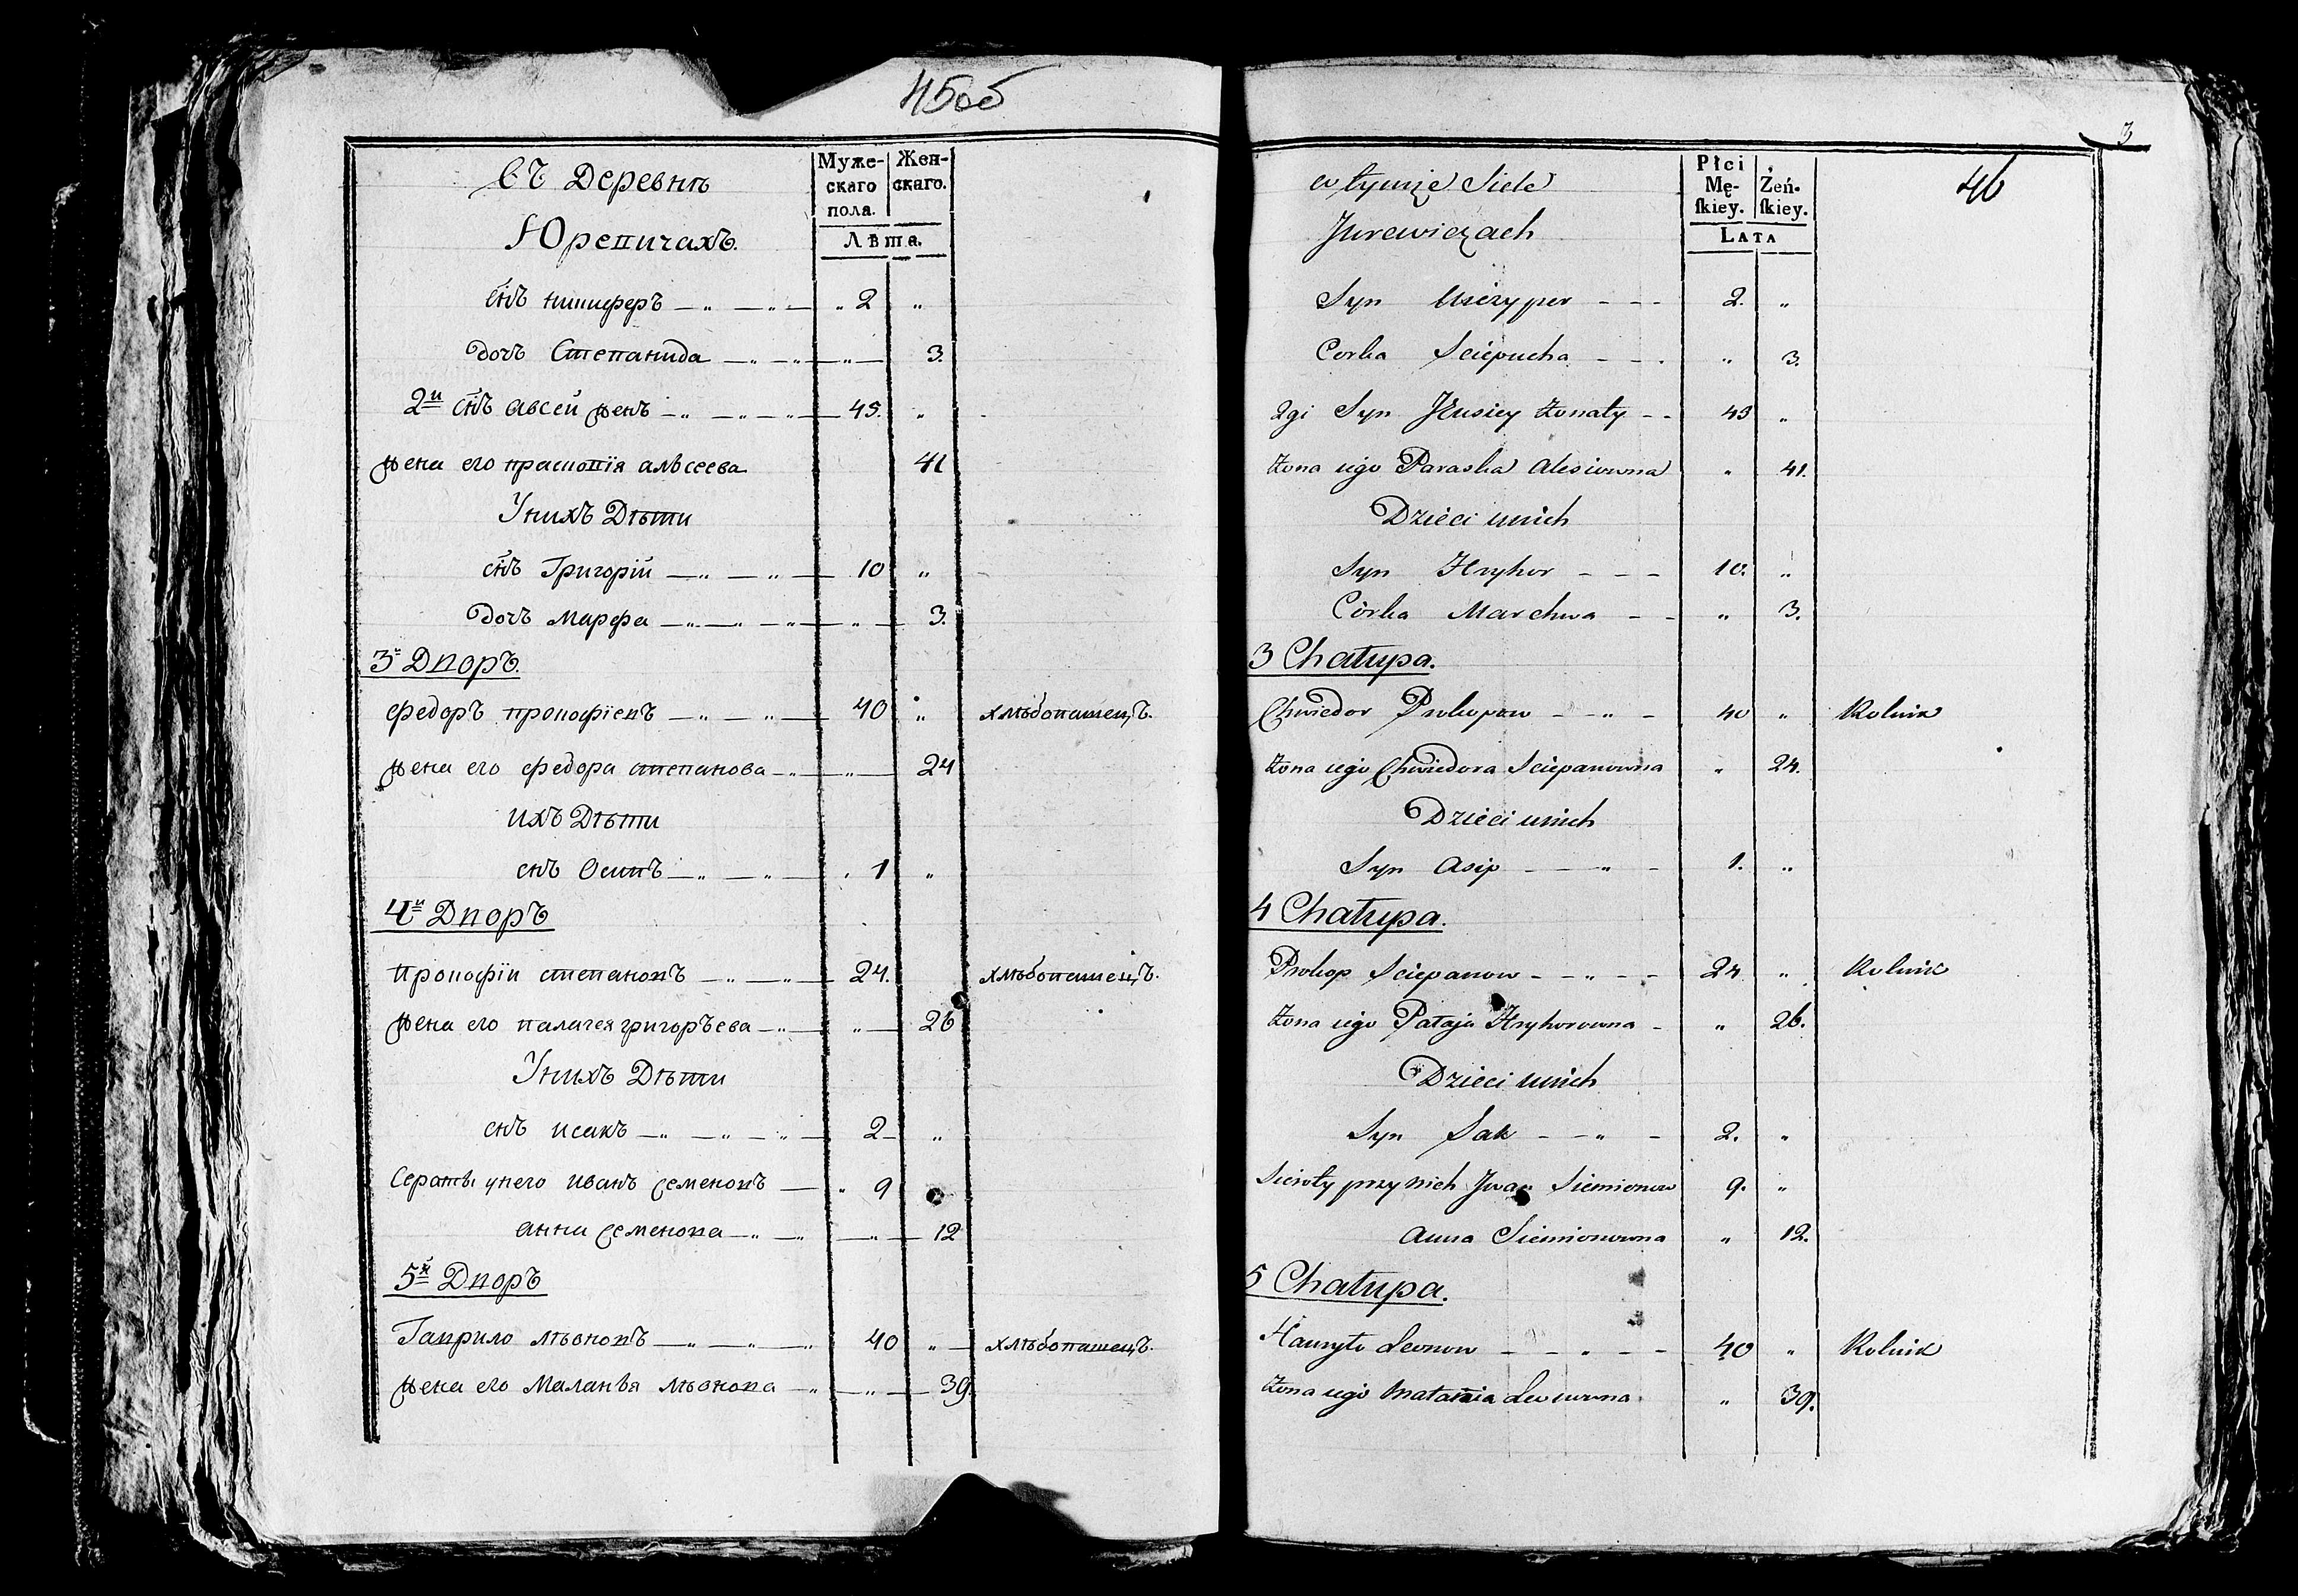 45об
въ Деревнѣ
Юревичахъ.
Муже-
скаго
пола.
Жен-
скаго.
Лѣта.
снъ никиферъ — " — " — " 2 "
дочь Степанида — " — " — " — 3
2й снъ Авсей женъ — " — " — " — 45. "
жена его прасковія алѣсеева 41
У нихъ Дѣти
снъ Григорій — " — " — 10 "
дочь марфа — " — " — " — " — 3.
3й Дворъ.
Федоръ прокофіевъ — " — " — 40 " хлѣбопашецъ.
жена его федора степанова — " — " — 24
ихъ Дѣти
снъ Осипъ — " — " — 1 "
4й Дворъ
Прокофій степановъ — " — " — 24. хлѣбопашецъ.
жена его палагея григорьева — " — " — 26
У нихъ Дѣти
снъ исакъ — " — " — " — 2 "
Сераты унего иванъ семеновъ — " 9
анна семенова — " — " — 12
5й Дворъ
Гаврило лѣоновъ — " — " — " 40 " — хлѣбопашецъ.
жена его Маланья лѣонова — " — " — 39.
3
46
w tymże Siele
Jurewiczach
Płci
Mę-
skiey.
Żeń-
skiey.
Lata
Syn - - - 2. "
Corka Sciepucha - - - " 3.
2gi Syn Żonaty - - 45 "
Żona iego Paraska Alesiowna " 41.
Dzieci unich
Syn Hryhor - - - 10. "
Córka Marchwa - - " 3.
3 Chałupa.
Chwiedor Prokopow - - " - 40 " Rolnik
Żona iego Chwiedora Sciepanowna " 24.
Dzieci unich
Syn Asip - - " - 1. "
4 Chałupa.
Prokop Sciepanow - - " - - 24 " Rolnik
Żona iego Pałaja Hryhorowna - " 26.
Dzieci unich
Syn Sak - - " - 2. "
Sieroty przy nich Jwan Siemionow 9. "
Anna Siemionowna " 12.
5 Chałupa.
Hauryło Leonow - - " - - 40 " Rolnik
Żona iego Małania Leonowna " 39.